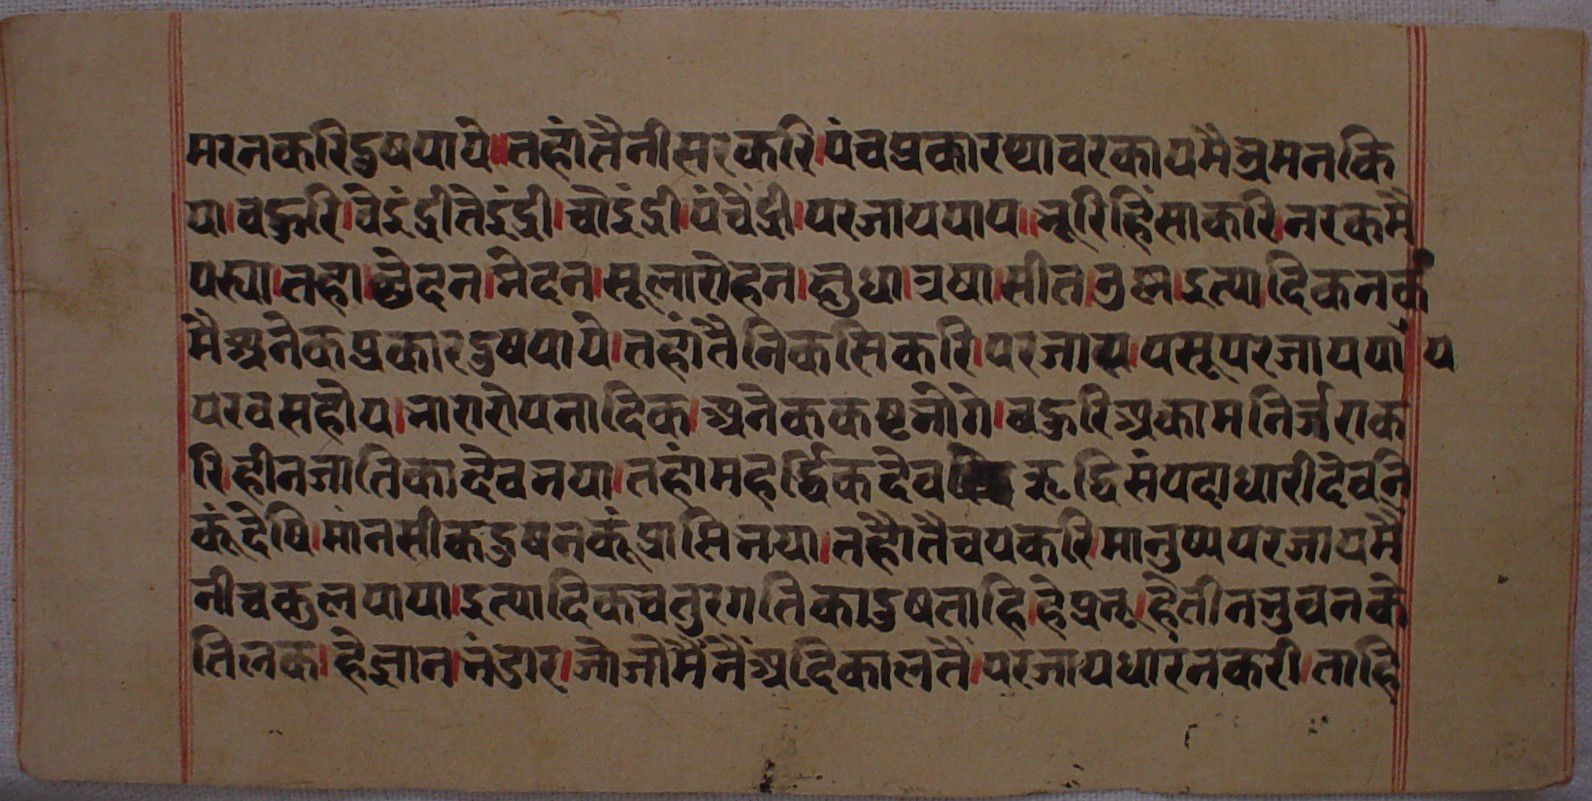 मरनकरिदुषपाये।तहांतैनीसरकरि।पंचप्रकारथावरकायमैभ्रमनकि
या।बहुरि।वेइंद्रीतेइंद्री।चौइंद्री।पंचेंद्री।परजायपाय।भूरिहिंसाकरि।नरकमै
पड्या।तहां।छेदन।भेदन।सूलारोहन।क्षुधा।त्रषा।सीत।उष्न।इत्यादिकनर्क
मैअनेकप्रकारदुषपाये।तहांतैनिकसिकरि।परजाय।पसूपरजायपाय
परवसहोय।भारारोपनादिक।अनेककष्टभोगे।बहुरिअकामनिर्जराक
रि।हीनजातिकादेवभया।तहांमहर्द्धिकदेव ऋद्धिसंपदाधारीदेवनि
कूंदेषि।मांनसीकदुषनकूंप्राप्तिभया।तहांतैचयकरि।मानुष्यपरजायमै
नीचकुलपाया।इत्यादिकचतुरगतिकादुषताहि।हेप्रभू।हेतीनभुवनके
तिलक।हेज्ञान।भंडार।जोजोमैंनैंअदिकालतैं।परजायधारनकरी।ताहि